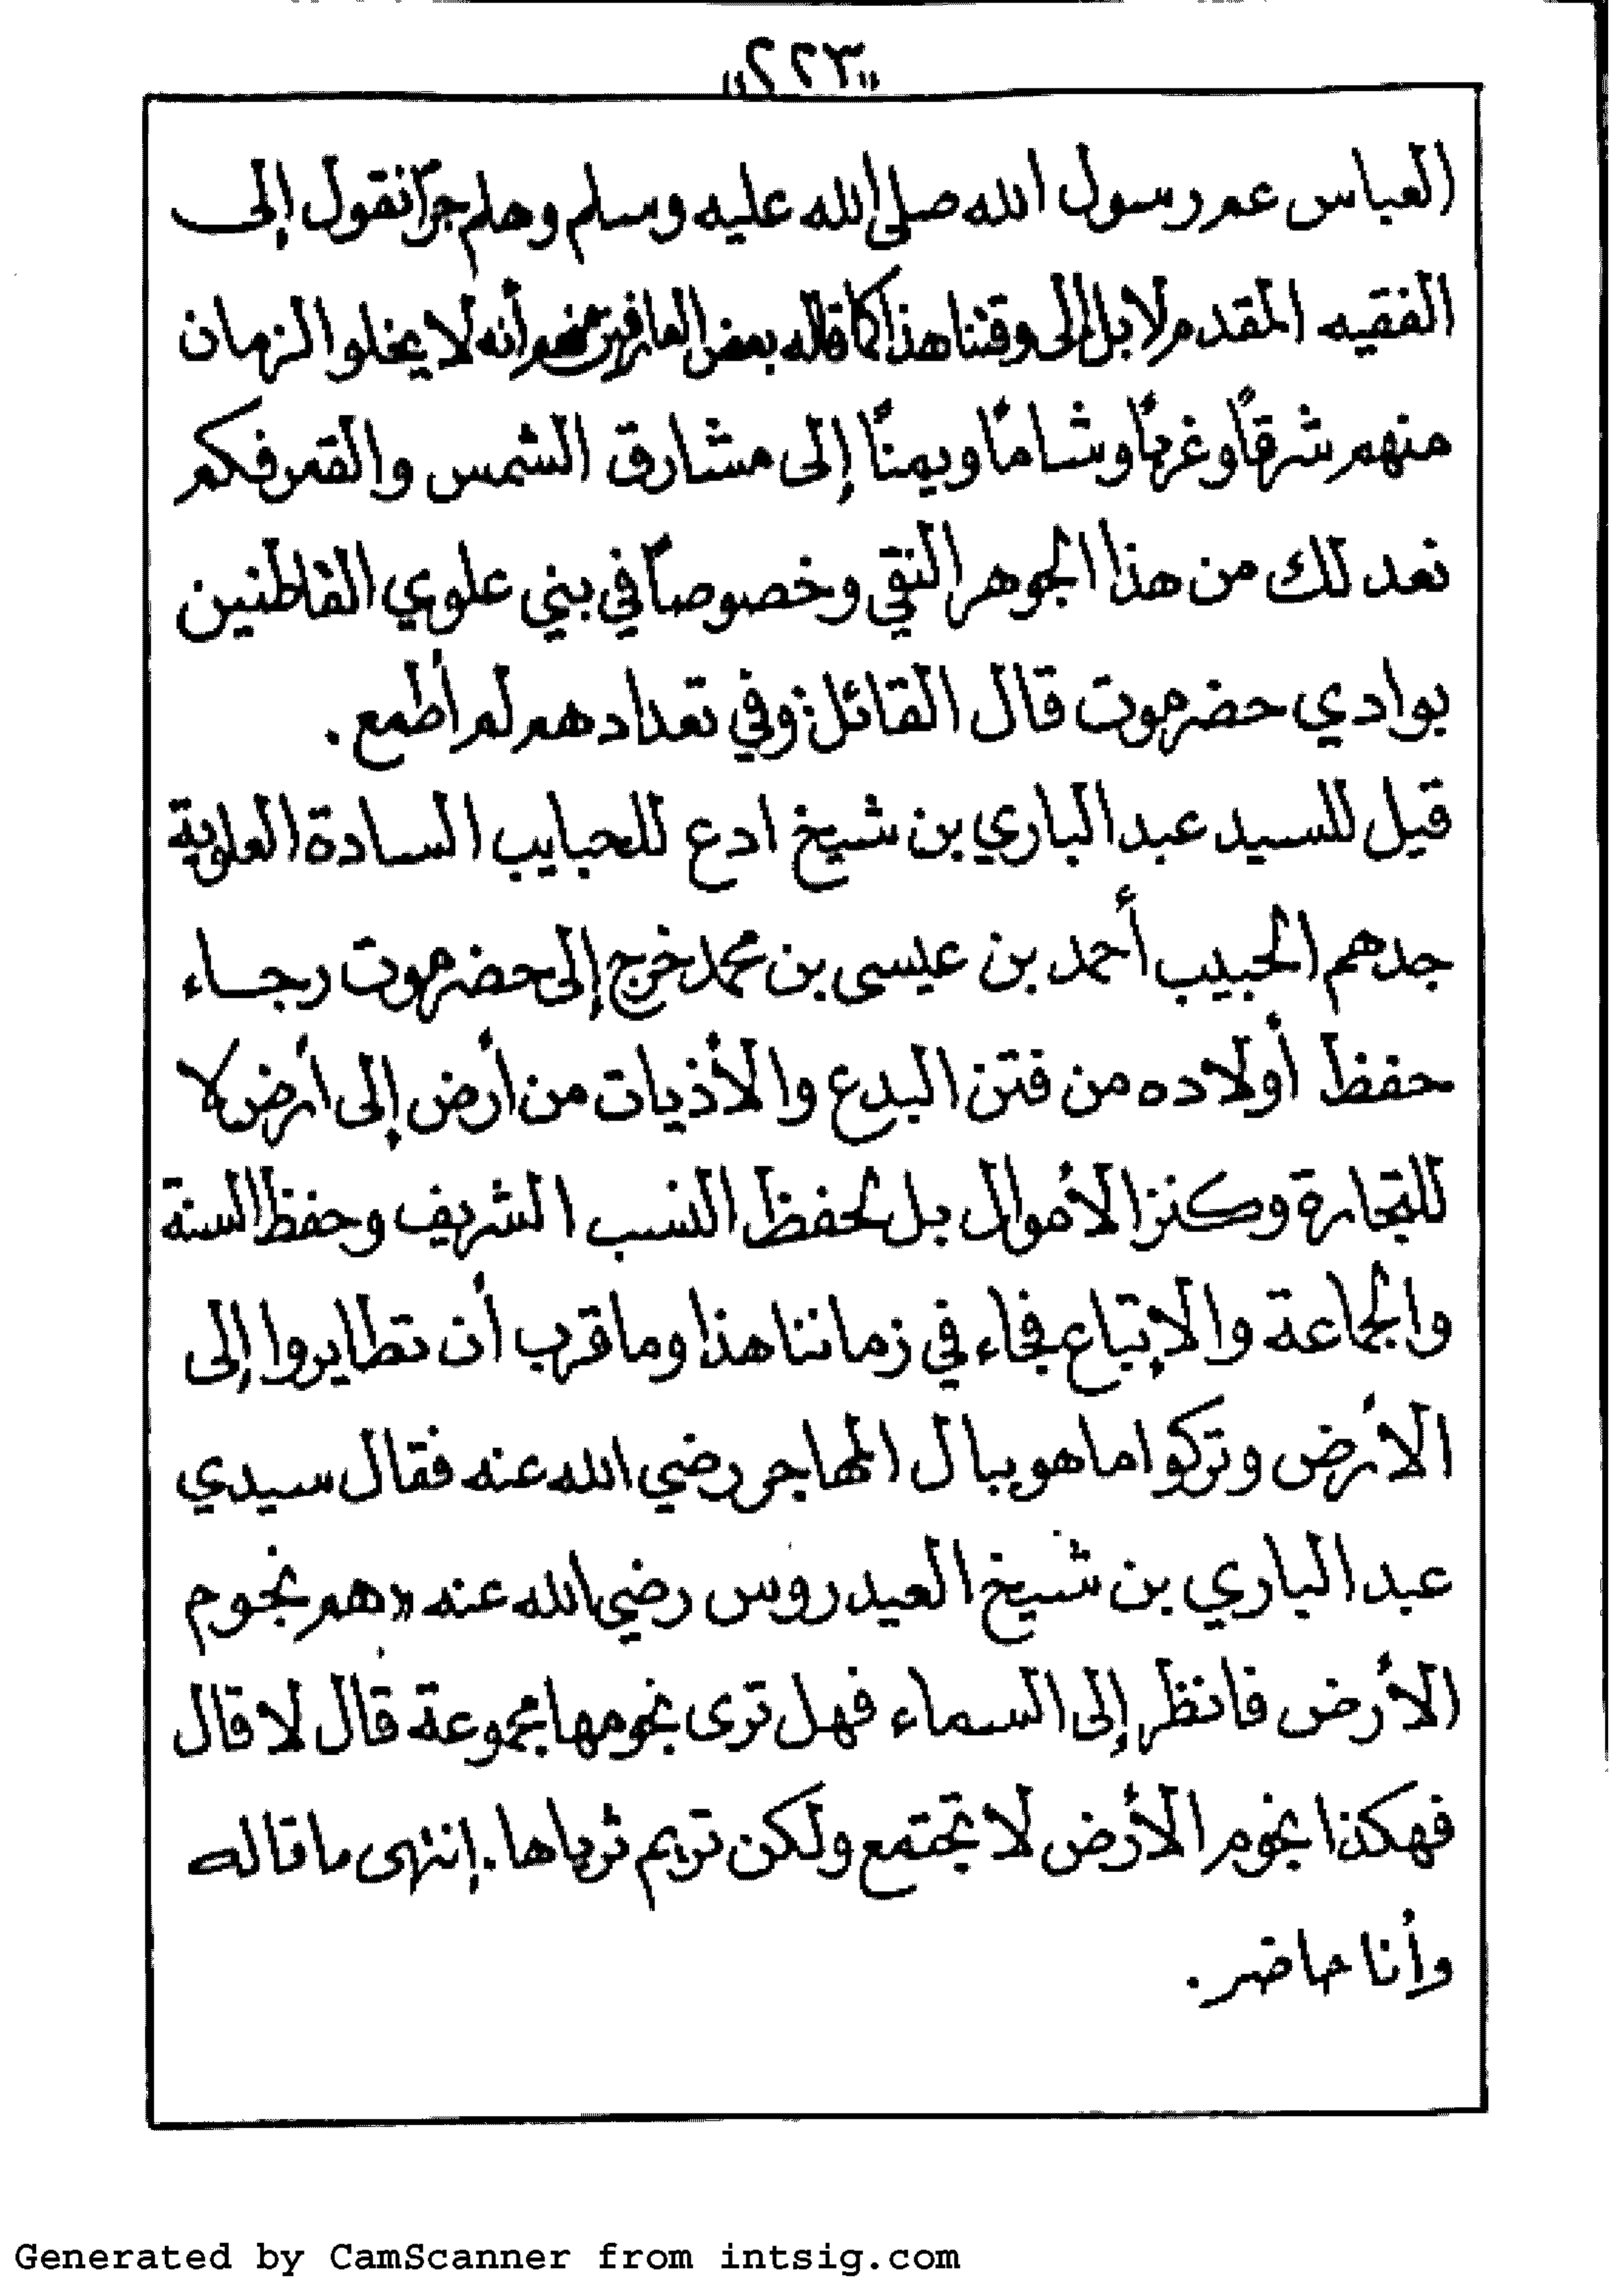 "٢٢٣"
العباس عم رسول الله صلى الله عليه وسلم وهلم جرّا نقول إلى
الفقيه المقدم لا بل إلى وقتنا هذا كما قاله بعض العارفين منهم أنه لا يخلو الزمان
منهم شرقًا وغربًا وشامًا ويمنًا إلى مشارق الشمس والقمر فكم
نعد لك من هذا الجوهر النقي وخصوصًا في بني علوي القاطنين
بوادي حضرموت قال القائل: وفي تعدادهم لم أطمع .
قيل للسيد عبد الباري بن شيخ ادع للحبايب السادة العلوية
جدهم الحبيب أحمد بن عيسى بن محمد خرج إلى حضرموت رجاء
حفظ أولاده من فتن البدع والأذيات من أرض إلى أرض لا
للتجارة وكنز الأموال بل لحفظ النسب الشريف وحفظ السنة
والجماعة والإتباع فجاء في زماننا هذا وما قرب أن تطايروا إلى
الأرض وتركوا ما هو ببال المهاجر رضي الله عنه فقال سيدي
عبد الباري بن شيخ العيدروس رضي الله عنه «هم نجوم
الأرض فانظر إلى السماء فهل ترى نجومها مجموعة قال لا قال
فهكذا نجوم الأرض لا تجتمع ولكن تريم ثرياها . إنتهى ما قاله
وأنا حاضر .
Generated by CamScanner from intsig.com